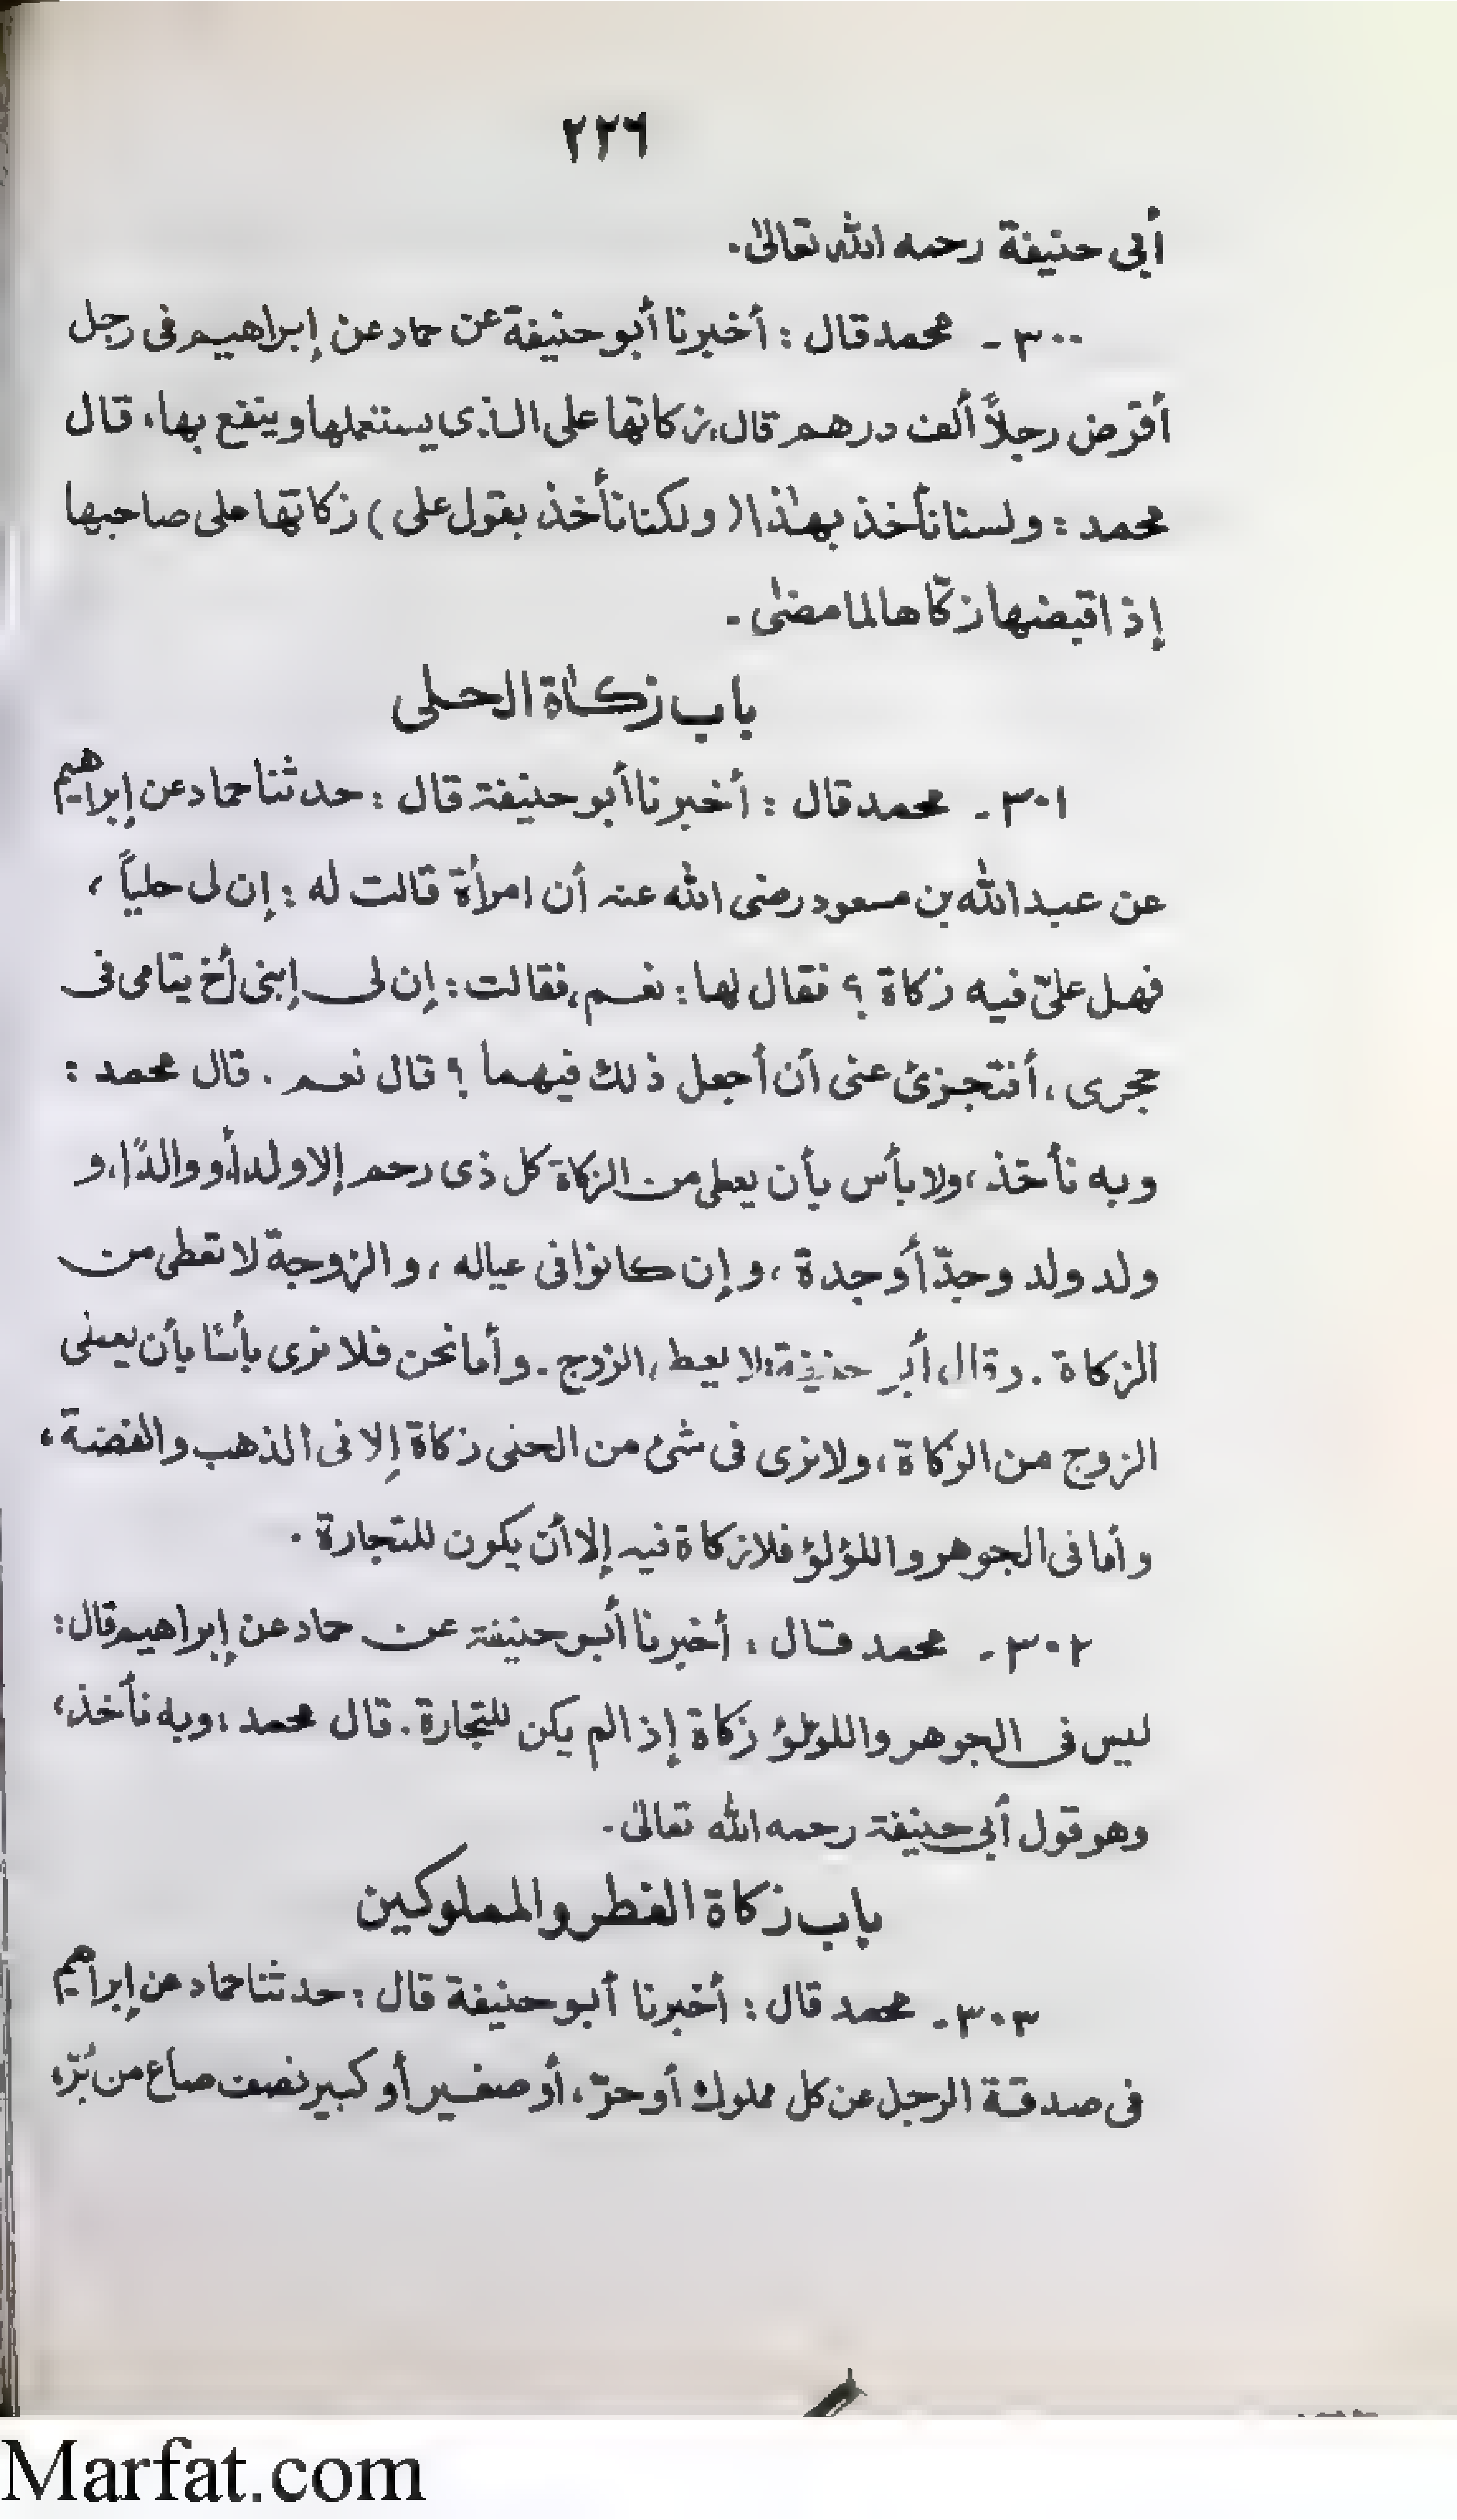 ٢٢٦
أبى حنيفة رحمه الله تعالىٰ.
٣٠٠ - محمد قال : أخبرنا أبو حنيفة عن حماد عن إبراهيم فى رجل
أقرض رجلاً ألف درهم قال، زكاتها على الذى يستعملها وينتفع بها، قال
محمد : ولسنا نأخذ بهٰذا (ولكنا نأخذ بقول على) زكاتها على صاحبها
إذا قبضها زكّاها لما مضىٰ -
باب زكاة الحلى
٣٠١ - محمد قال : أخبرنا أبو حنيفة قال : حدثنا حماد عن إبراهيم
عن عبد الله بن مسعود رضى الله عنه أن امرأة قالت له : إن لى حلياً ،
فهل علىّ فيه زكاة ؟ فقال لها : نعم، فقالت : إن لى إبنى أخ يتامى فى
حجرى، أفتجزئ عنى أن أجعل ذلك فيهما ؟ قال نعم . قال محمد :
وبه نأخذ، ولا بأس بأن يعطى من الزكاة كل ذى رحم إلا ولداً، أو والدًا، و
ولد ولد وجدّ أو جدة ، وإن كانوا فى عياله ، والزوجة لا تعطى من
الزكاة . وقال أبو حنيفة: لا يعط الزوج - وأما نحن فلا نرى بأسًا بأن يعطى
الزوج من الزكاة، ولا نرى فى شئ من الحلى زكاة إلا فى الذهب والفضة ،
وأما فى الجوهر واللؤلؤ فلا زكاة فيه إلا أن يكون للتجارة .
٣٠٢ - محمد قال : أخبرنا أبو حنيفة عن حماد عن إبراهيم قال :
ليس فى الجوهر واللؤلؤ زكاة إذا لم يكن للتجارة . قال محمد : وبه نأخذ،
وهو قول أبى حنيفة رحمه الله تعالىٰ .
باب زكاة الفطر والمملوكين
٣٠٣ - محمد قال : أخبرنا أبو حنيفة قال : حدثنا حماد عن إبراهيم
فى صدقة الرجل عن كل مملوك أو حرّ، أو صغير أو كبير نصف صاع من بُرّ،
Marfat.com